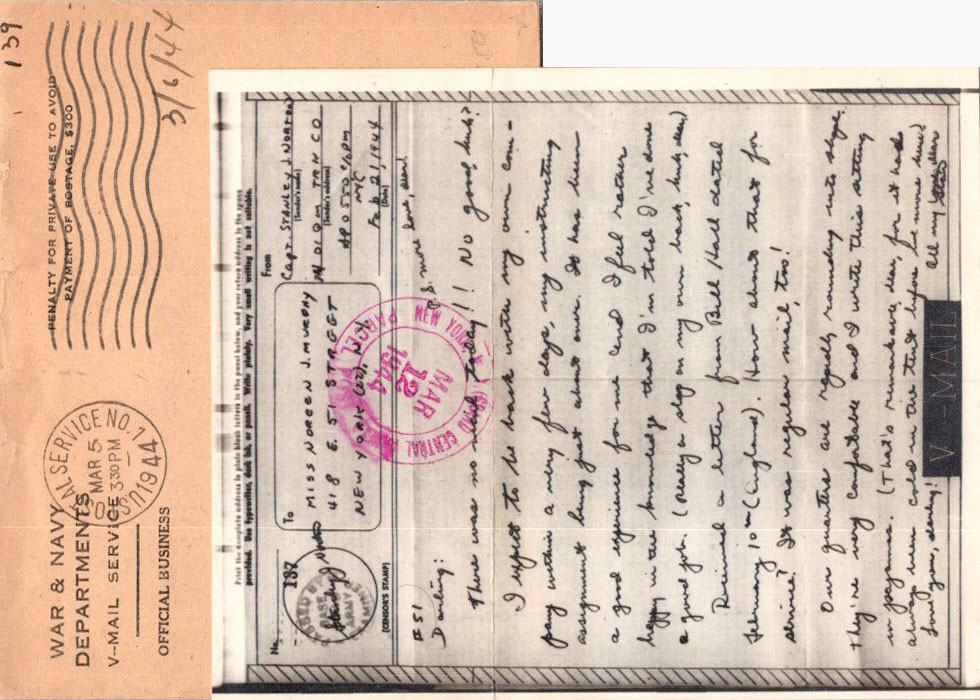 139
3/6/44
PENALTY FOR PRIVATE USE TO AVOID
PAYMENT OF POSTAGE, $300
U.S. POSTAL SERVICE NO. 144
MAR 5
3 30 PM
1944
WAR & NAVY
DEPARTMENTS
V-MAIL SERVICE
OFFICIAL BUSINESS
Print the complete address in plain block letters in the panel below, and your return address in the space
provided. Use typewriter, dark ink, or pencil. Write plainly. Very small writing is not suitable.
No. 137
To
MISS NOREEN J. MURPHY
418 E. 51 STREET
NEW YORK (22), N.Y.
From
Capt. STANLEY J. NORTON
(Sender's name)
M 101 QM TRK CO
(Sender's address)
APO 550 c/o PM
NYC
Feb 21, 1944
(Date)
PASSED BY
BASE
ARMY
EXAMINER
(CENSOR'S STAMP)
GRAND CENTRAL ANNOX NEW
PARCEL
MAR
12
1944
P.S. more love, dear.
#51
Darling:
There was no mail today!! No good, huh?
I expect to be back with my own com-
pany within a very few days, my instructing
assignment being just about over. It has been
a good experience for me and I feel rather
happy in the knowledge that I'm told I've done
a good job. (Really a slap on my own back, huh, dear)
Received a letter from Bill Hall dated
February 10th (England). How about that for
service! It was regular mail, too!
Our quarters are rapidly rounding into shape.
They're very comfortable and I write this sitting
in pajamas. (That's remarkable, dear, for it had
always been cold in the tent before we moved here)
Love you, darling! All my love, dear
Stan
V-MAIL